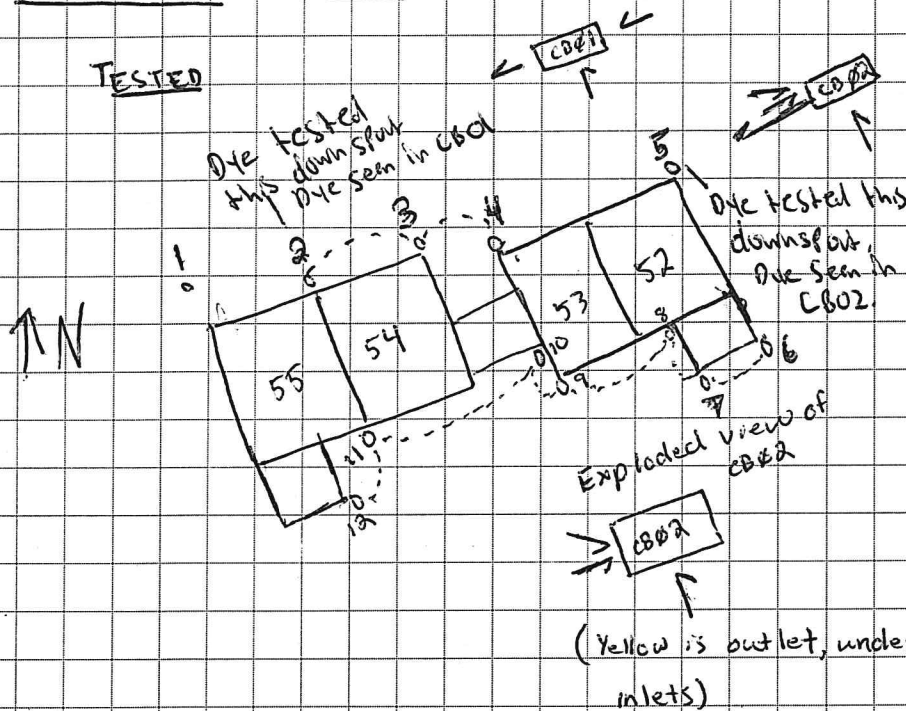 TESTED
CBØ1
CBØ2
Dye tested
this downspout
Dye seen in CB01
1
2
3
4
5
Dye tested this
downspout.
Dye seen in
CB02.
N
55
54
53
52
8
10
9
6
7
11
12
Exploded view of
CBØ2
CBØ2
(Yellow is outlet, unde
inlets)